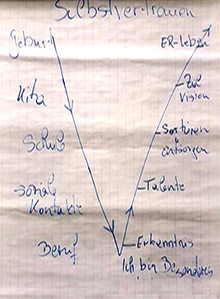 Selbstvertrauen
Geburt
ER-leben
Kita
Zur
Vision
Schule
Sortieren
entsorgen
soziale
Kontakte
Talente
Beruf
Erkenntnis
Ich bin Besonderes